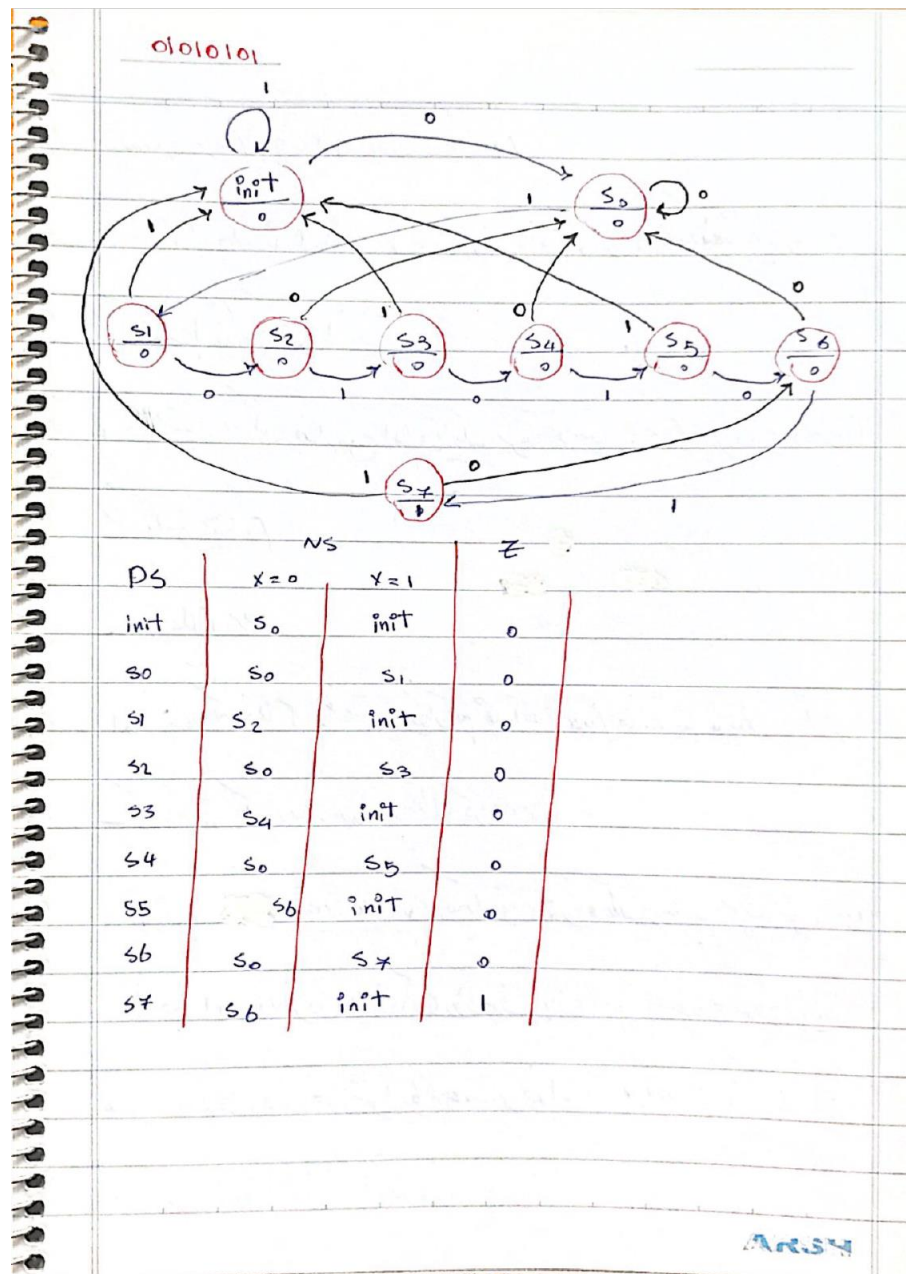 01010101
1
0
init
0
S0
0
0
1
1
0
1
0
1
0
S1
0
S2
0
S3
0
S4
0
S5
0
S6
0
0
1
0
1
0
1
0
S7
1
1
NS Z
PS x=0 x=1
init S0 init 0
S0 S0 S1 0
S1 S2 init 0
S2 S0 S3 0
S3 S4 init 0
S4 S0 S5 0
S5 S6 init 0
S6 S0 S7 0
S7 S6 init 1